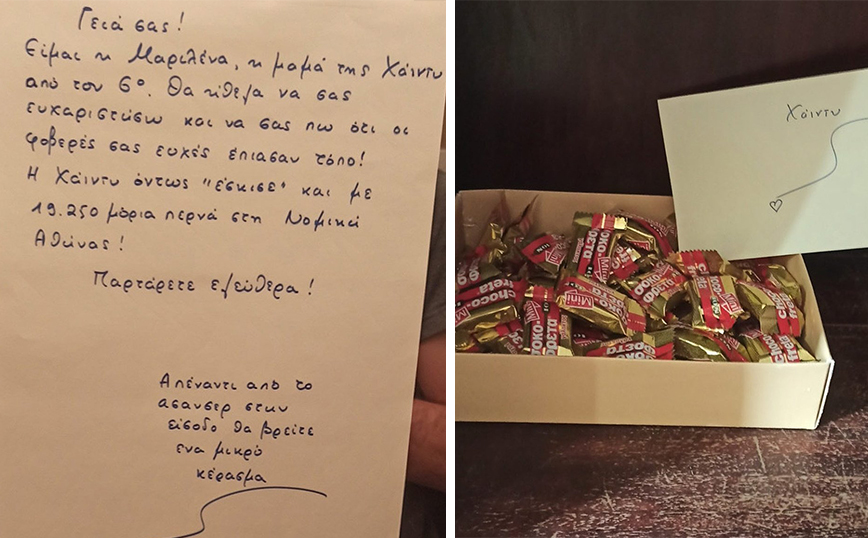 Γειά σας!
Είμαι η Μαριλένα, η μαμά της Χάιντυ
από τον 6º. Θα ήθελα να σας
ευχαριστώσω και να σας πω ότι οι
φοβερές σας ευχές έπιασαν τόπο!
Η Χάιντυ όντως "έσκισε" και με
19.250 μόρια περνά στη Νομική
Αθήνας!
Παρτάρετε ελεύθερα!
Απέναντι από το
ασανσερ στην
είσοδο θα βρείτε
ενα μικρό
κέρασμα
Χάιντυ
choco
freta
Mini
σοκο
φρετα
Mini
choco
freta